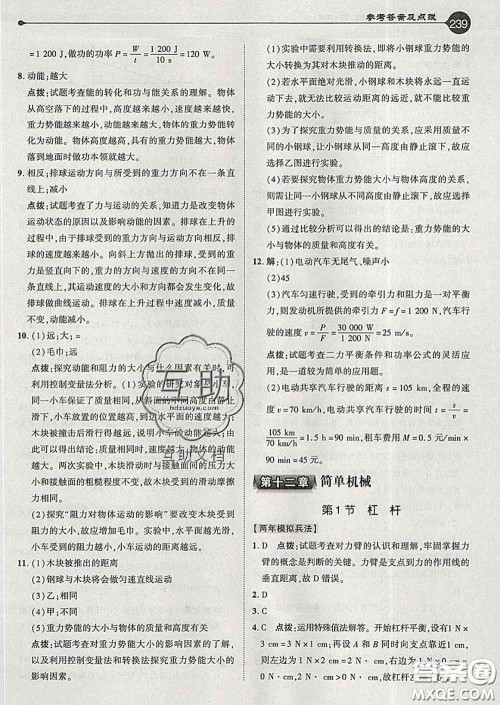 参考答案及点拨
239
=1 200 J，做功的功率 P = W/t = 1 200 J/10 s = 120 W
8. 动能；越大
点拨：试题考查能的转化和功与能的关系问题。物体
从高空落下的过程中，高度越来越小，速度越来越快，
重力势能越来越小，动能越来越大，物体的重力势能
转化为动能。物体高度越高，重力势能越大，物体
落到地面时代表的动能越大。
9. 相反；运动方向与所受到的重力方向不在一条直
线上；减小
点拨：试题考查了力与运动的关系，知道力是改变物体
运动状态的原因以及影响动能的因素。排球在上升的
过程中，由于排球受到的重力方向与运动方向相反，排
球的速度越来越小。向斜上方抛出的排球，由于受到
的重力方向与运动方向不在一条直线上，所以排球的
速度大小和方向都会发生改变。排球在上升过程中，
速度越来越小，排球的质量不变，所以排球的动能
不变。
10. (1)远；大；=
(2)毛巾；远
点拨：探究动能和阻力的大小与什么因素有关时，可
利用控制变量法分析。(1)实验的研究对象是小车，
同一小车保证了质量相同，从斜面的不同高度由静止滑
下，小车放置的位置越高，到达水平面时的速度越大，
木块被撞后运动得越远，小车对木块做的功越多，动
能越大。两次实验中，木块滑动时与接触面间的压力
大小不变，接触面的粗糙程度不变，故木块受到的摩
擦力不变。
(2)探究“阻力对物体运动的影响”时，需要在水平
面上铺上粗糙程度不同的物体。实验中，水平面越光
滑，小车滑行的距离越远。
11. (1)木块被推出的距离
(2)钢球与木块将会做匀速直线运动
(3)乙；相同
(4)甲；相同
(5)物体重力势能的大小与物体的质量和高度有关
点拨：试题考查了影响重力势能大小的因素的了解，以
及利用控制变量法和转换法探究重力势能大小的影
响因素的实验。
(1)实验时需要利用转换法，即将小钢球重力势能的
大小转换为其对木块推动的距离。
(2)若水平面绝对光滑，则小钢球与木块将会做匀速
直线运动，无法比较运动距离的远近，不能得出实验
结论。
(3)为了探究重力势能与质量的关系，应采用质量不
同的小钢球从同一高度由静止滚下，故应选择乙图进行分析。
(4)为了探究物体重力势能与高度的关系，则需要让
同一个小钢球从不同高度由静止滚下，故应选择
甲图进行分析。
(5)通过比较分析可以得出：物体的重力势能的大
小与物体的质量和高度有关系。
12. 解：(1)电动汽车无尾气、噪声小
(2)45
(3)汽车匀速行驶时，受到的牵引力和阻力是一对平衡
力，则发动机所提供的牵引力 F = f = 1 200 N，汽车行
驶的速度 v = P/F = 30 000 W/1 200 N = 25 m/s。
点拨：试题考查二力平衡条件和功率公式的灵活应
用，是一道较为简单的应用题。
(4)电动共享汽车行驶的距离 s = 105 km，全程的速
度 v = 70 km/h，电动共享汽车行驶的时间 t = s/v =
105 km/70 km/h = 1.5 h = 90 min，租车费用 M = 0.5 元/min ×
90 min = 45 元。
第十二章 简单机械
第1节 杠杆
【两年模拟兵法】
1. D 点拨：试题考查对力臂的认识和理解，牢固掌握力
臂的概念是解题的关键。力臂是支点到力的作用线的
垂直距离，故 D 错误。
2. D
3. C
4. C 点拨：运用特殊值法解答。开始杠杆平衡，1 N ×
3 cm = 3 N × 1 cm；两边同时向靠近支点移动
互助
hdzuoye.com
互助文档
答案圈
MXQE.COM